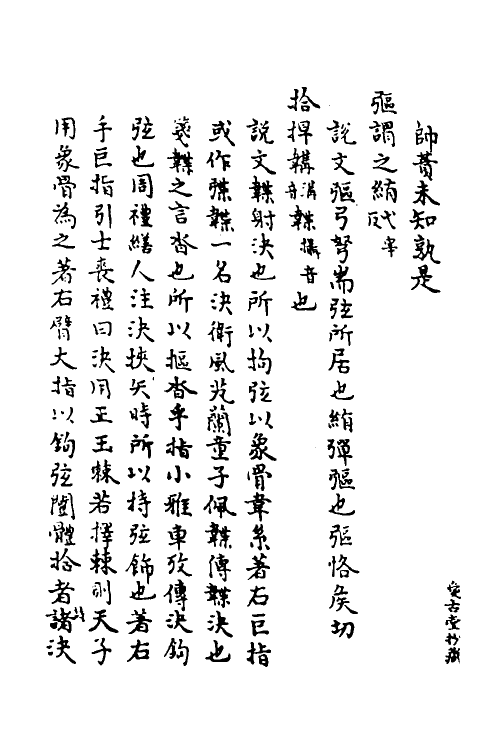 帥贊未知孰是
彄謂之䋛弋宰反
說文彄弓弩耑弦所居也䋛彈彄也彄恪侯切
拾捍韝音溝韘音攝也
說文韘射決也所以拘弦以象骨韋系著右巨指
或作弽韘一名決衛風芄蘭童子佩韘傳韘決也
箋韘之言沓也所以摳沓手指小雅車攻傳決鉤
弦也周禮繕人注決挾矢時所以持弦飾也著右
手巨指引士喪禮曰決用正王棘若擇棘則天子
用象骨為之著右臂大指以鉤弦闓體拾者諸決
愛古堂抄藏